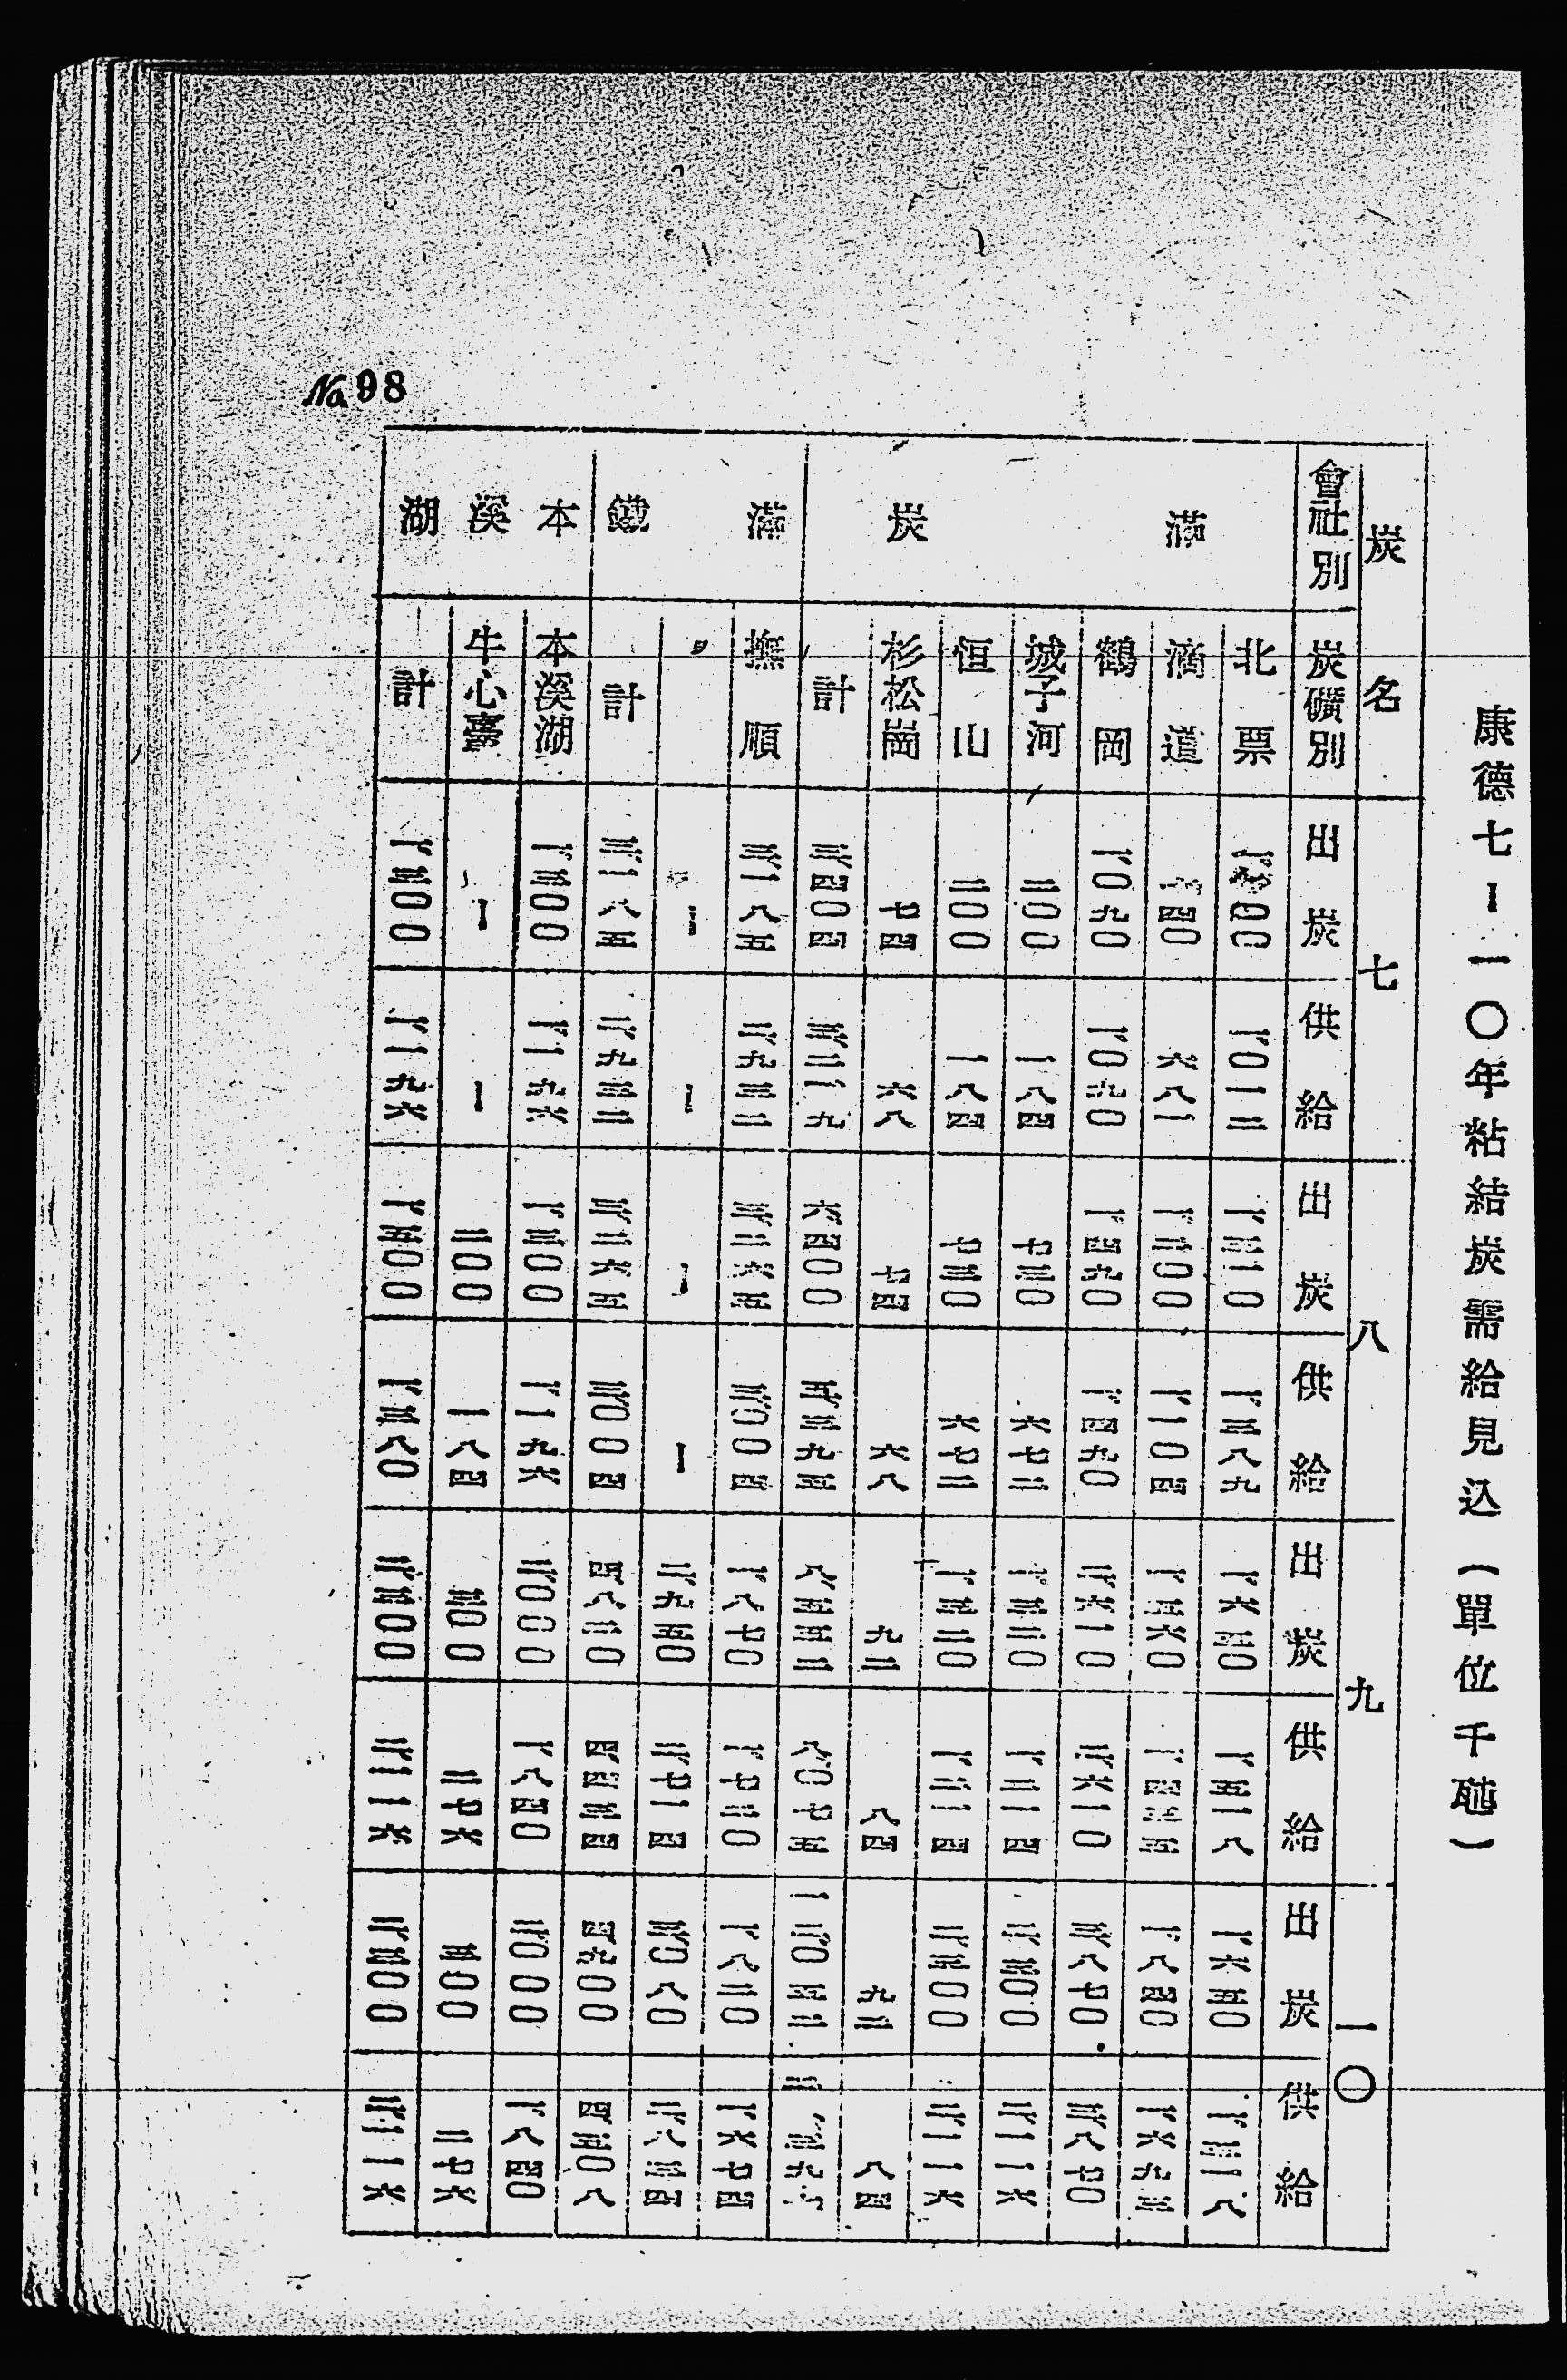 康德七ー一〇年粘結炭需給見込(單位千瓲)
炭名 七 八 九 一〇
會社別 炭礦別 出炭 供給 出炭 供給 出炭 供給 出炭 供給
滿炭 北票 一、〇一二 一、五一〇 一、三八九 一、六五〇 一、五一八 一、六五〇 一、五一八
滴道 七四〇 六八一 一、二〇〇 一、一〇四 一、五六〇 一、四三五 一、八四〇 一、六九三
鶴岡 一、〇九〇 一、〇九〇 一、四九〇 一、四九〇 二、六一〇 二、六一〇 三、八七〇 三、八七〇
城子河 二〇〇 一八四 七三〇 六七二 一、三二〇 一、二一四 二、三〇〇 二、一一六
恒山 二〇〇 一八四 七三〇 六七二 一、三二〇 一、二一四 二、三〇〇 二、一一六
杉松崗 七四 六八 七四 六八 九二 八四 九二 八四
計 三、四〇四 三、二一九 六、四〇〇 五、三九五 八、五五二 八、〇七五 一二、〇五二
滿鐵 撫順 三、一八五 二、九三二 三、二六五 三、〇〇四 一、八七〇 一、七二〇 一、八二〇 一、六七四
〃 ー ー ー ー 二、九五〇 二、七一四 三、〇八〇 二、八三四
計 三、一八五 二、九三二 三、二六五 三、〇〇四 四、八二〇 四、四三四 四、九〇〇 四、五〇八
本溪湖 本溪湖 一、三〇〇 一、一九六 一、三〇〇 一、一九六 二、〇〇〇 一、八四〇 二、〇〇〇 一、八四〇
牛心臺 ー ー 二〇〇 一八四 三〇〇 二七六 三〇〇 二七六
計 一、三〇〇 一、一九六 一、五〇〇 一、三八〇 二、三〇〇 二、一一六 二、三〇〇 二、一一六
No. 98